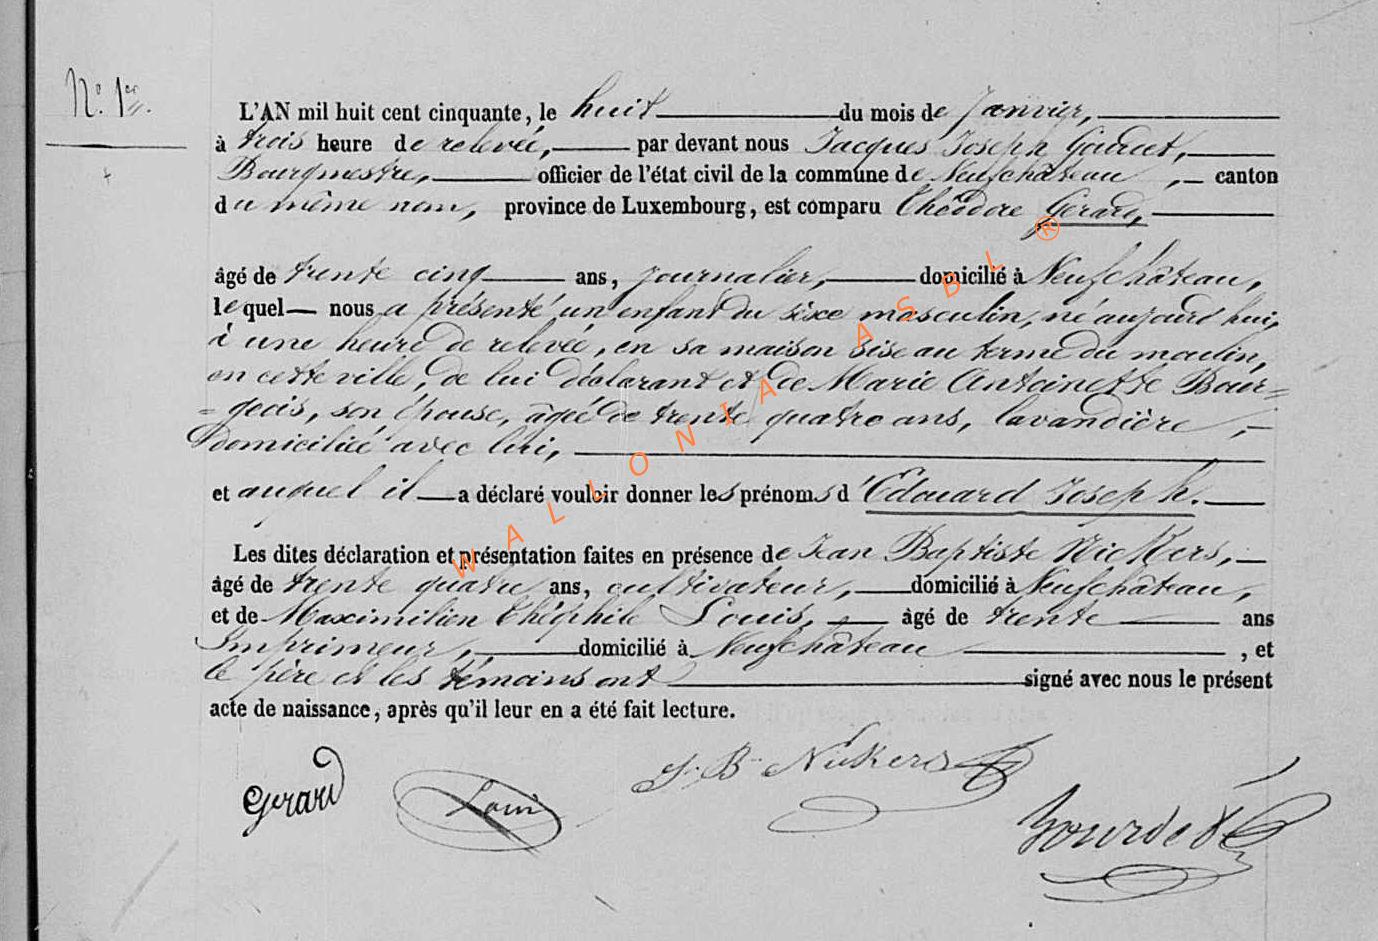 N.° 1er.
L'AN mil huit cent cinquante, le huit du mois de Janvier,
à trois heure de relevée, par devant nous Jacques Joseph Gourdet,
Bourgmestre, officier de l'état civil de la commune de Neufchâteau, canton
du même nom, province de Luxembourg, est comparu Théodore Gérard,
âgé de trente cinq ans, journalier, domicilié à Neufchâteau,
lequel nous a présenté un enfant du sexe masculin, né aujourd'hui,
à une heure de relevée, en sa maison sise au terme du moulin,
en cette ville, de lui déclarant et de Marie Antoinette Bour=
=geois, son épouse, âgée de trente quatre ans, lavandière,
domiciliée avec lui,
et auquel il a déclaré vouloir donner les prénoms d'Edouard Joseph.
Les dites déclaration et présentation faites en présence de Jean Baptiste Nickers,
âgé de trente quatre ans, cultivateur, domicilié à Neufchâteau,
et de Maximilien Théophile Louis, âgé de trente ans
Imprimeur, domicilié à Neufchâteau, et
le père et les témoins ont signé avec nous le présent
acte de naissance, après qu'il leur en a été fait lecture.
J. B. Nickers
Gerard Louis
WALLONIA ASBL ®